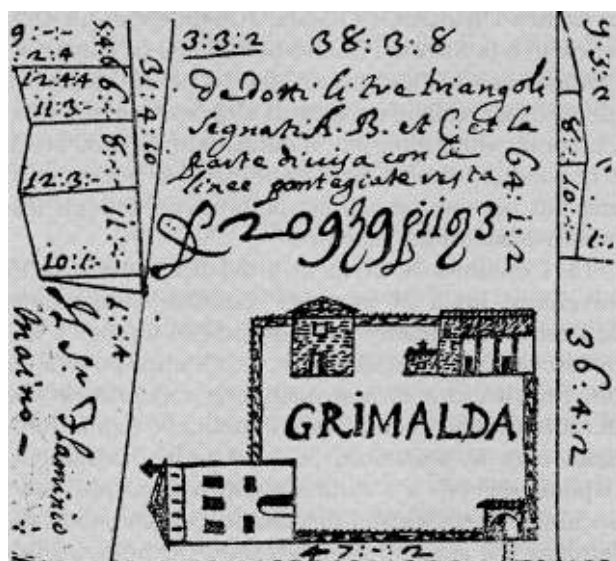 9:-:-
:2:4
12:4:4
11:3:-
12:3:-
10:1:-
5:4:6
6:-
8:-:-
11:-:-
1:-:4
3:4:10
3:3:2 38:3:8
dedotti li tre triangoli
segnati A. B. et C. et la
parte divisa con le
linee pontegiate resta
64:1:2
9:3:11
8:-
10:-
1:-
36:4:2
Sr Flaminio
Maino -
GRIMALDA
47:-:2